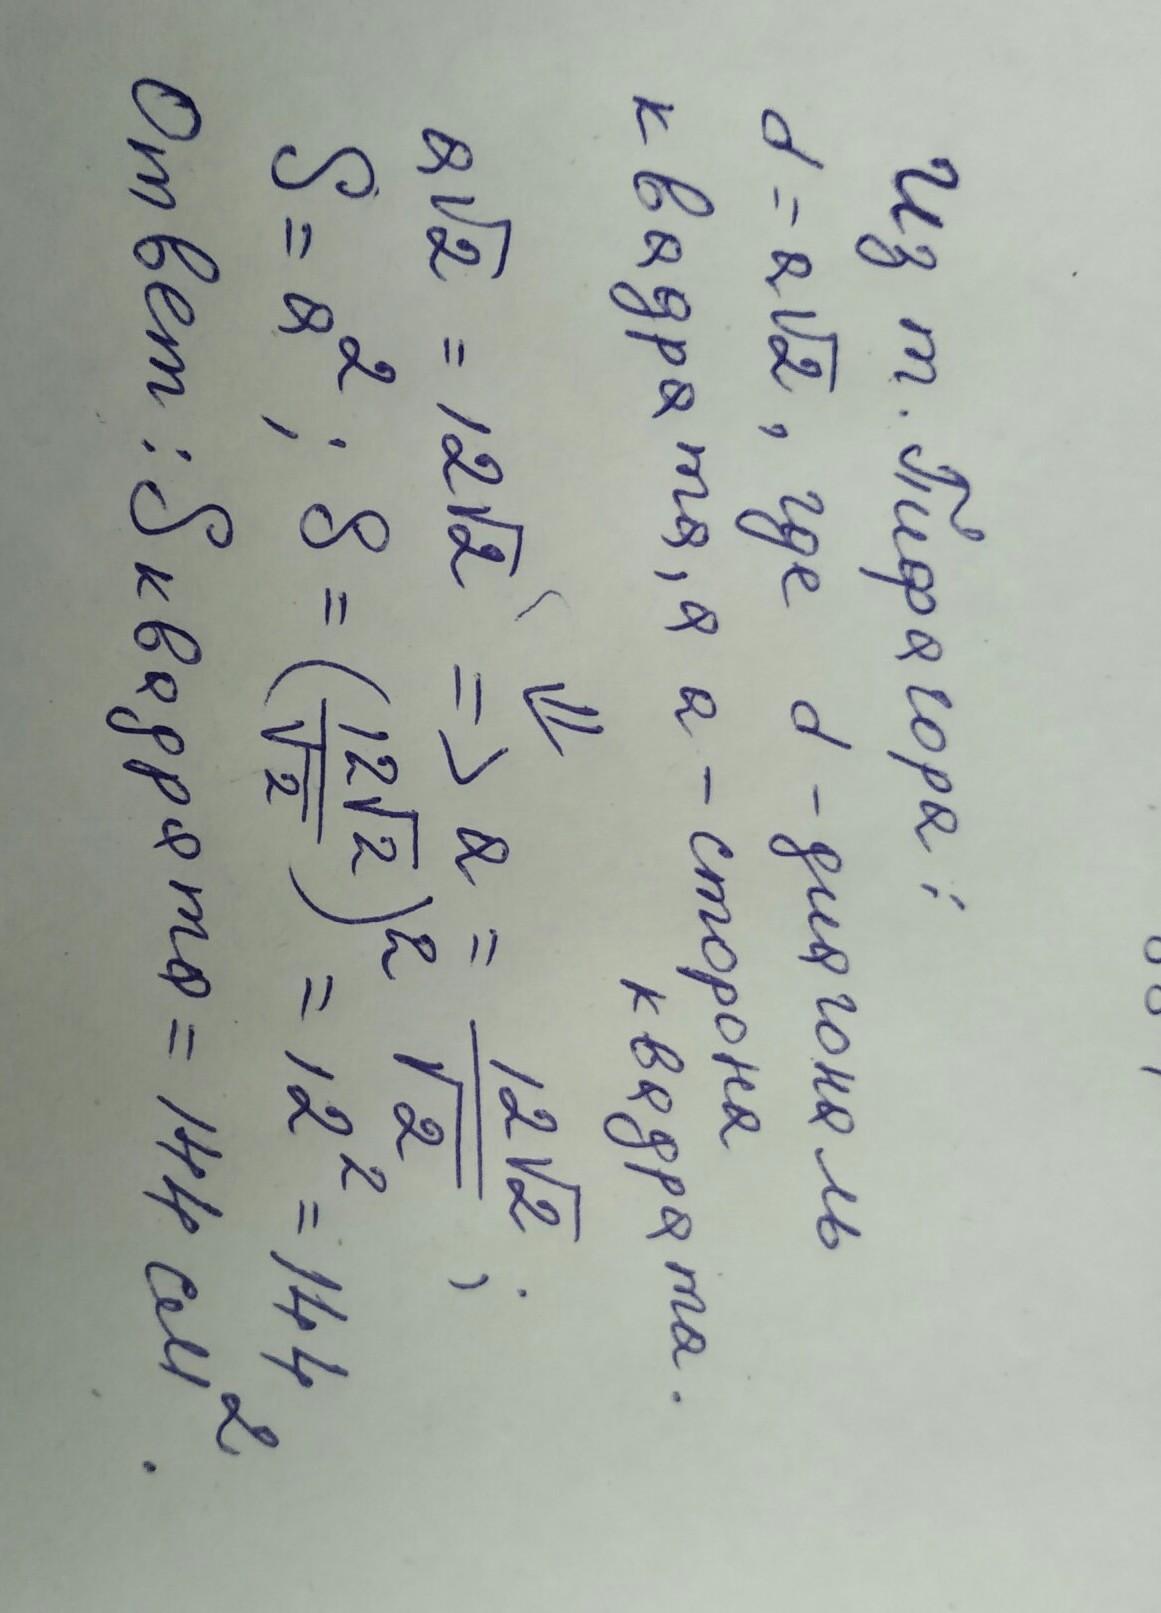 Из т. Пифагора:
d = a√2, где d - диагональ
квадрата, а a - сторона
квадрата.
⇓
a√2 = 12√2 => a = 12√2/√2 ;
S = a² ; S = (12√2/√2)² = 12² = 144
Ответ: S квадрата = 144 см².